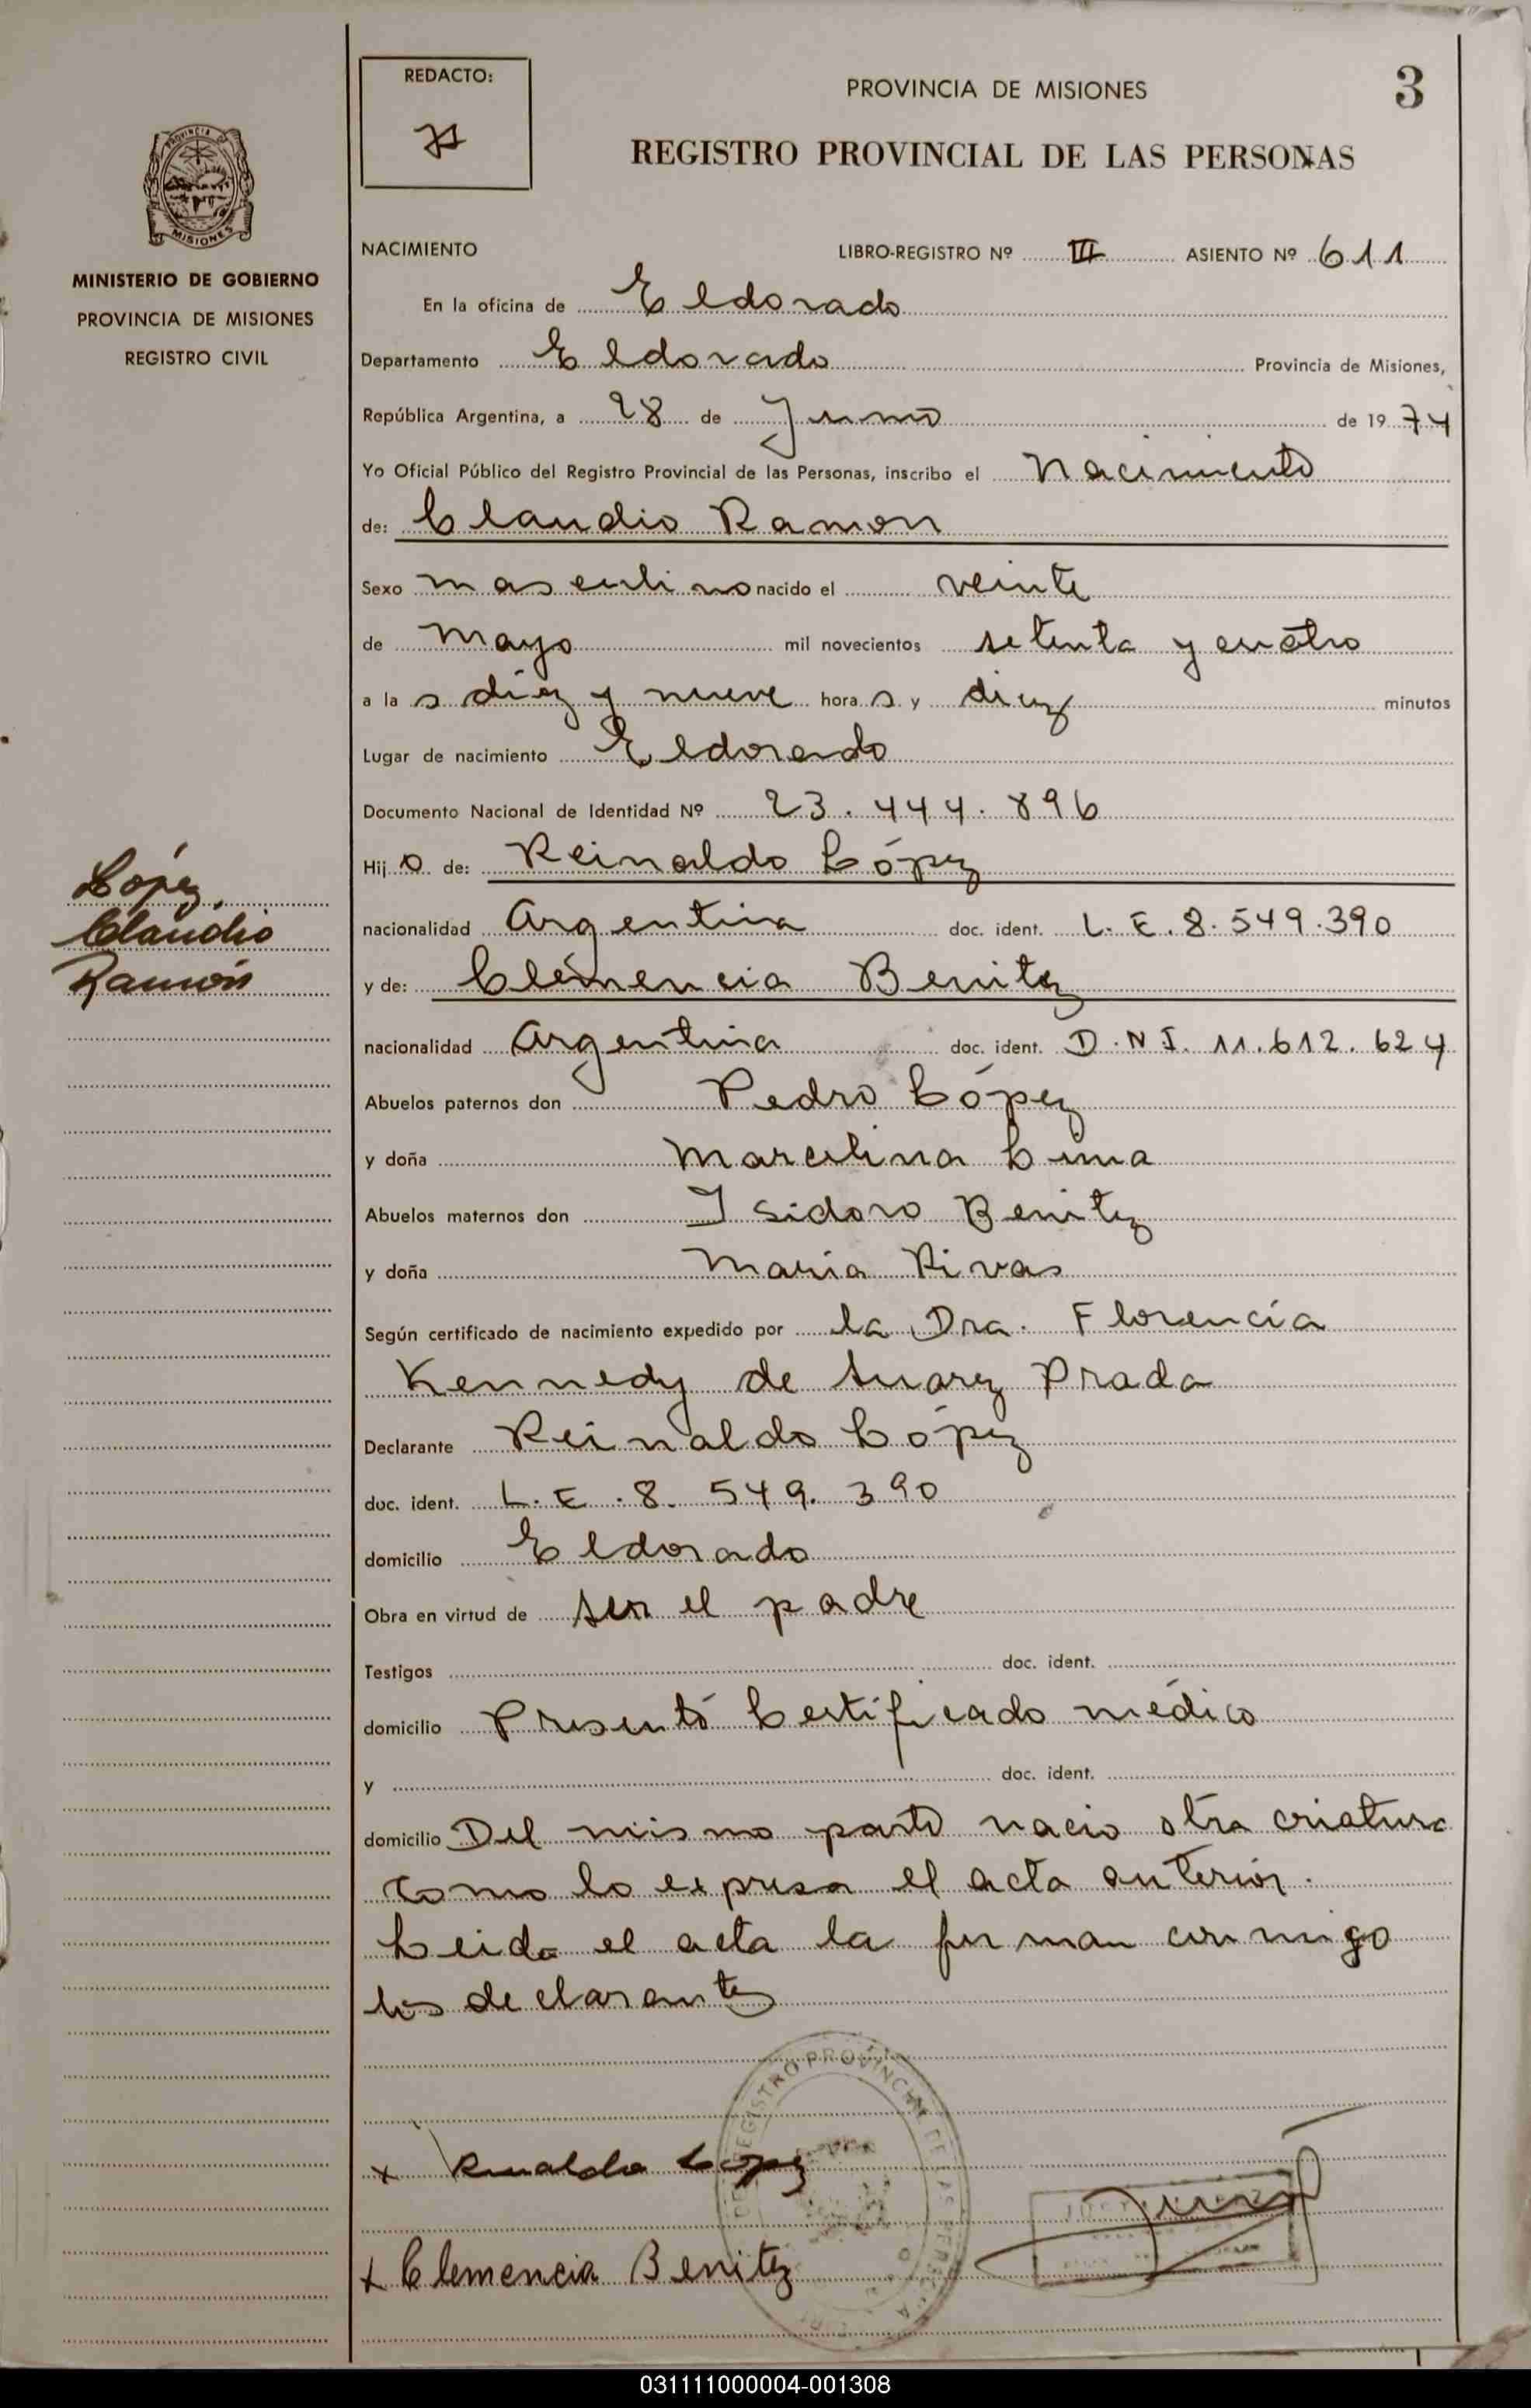 REDACTO:
PROVINCIA DE MISIONES
3
REGISTRO PROVINCIAL DE LAS PERSONAS
PROVINCIA DE
MISIONES
MINISTERIO DE GOBIERNO
PROVINCIA DE MISIONES
REGISTRO CIVIL
NACIMIENTO LIBRO-REGISTRO Nº III ASIENTO Nº 611
En la oficina de Eldorado
Departamento Eldorado Provincia de Misiones,
República Argentina, a 28 de Junio de 1974
Yo Oficial Público del Registro Provincial de las Personas, inscribo el Nacimiento
de: Claudio Ramon
Sexo masculino nacido el veinte
de mayo mil novecientos setenta y cuatro
a las diez y nueve horas y diez minutos
Lugar de nacimiento Eldorado
Documento Nacional de Identidad Nº 23.444.896
Hijo de: Reinaldo López
López,
Claudio
Ramón
nacionalidad Argentina doc. ident. L.E. 8.549.390
y de: Clemencia Benitez
nacionalidad Argentina doc. ident. D.N.I. 11.612.624
Abuelos paternos don Pedro López
y doña Marcelina Luna
Abuelos maternos don Isidoro Benitez
y doña María Rivas
Según certificado de nacimiento expedido por la Dra. Florencia
Kennedy de Suarez Prada
Declarante Reinaldo López
doc. ident. L.E. 8.549.390
domicilio Eldorado
Obra en virtud de ser el padre
Testigos doc. ident.
domicilio Presentó Certificado médico
y doc. ident.
domicilio Del mismo parto nacio otra criatura
como lo expresa el acta anterior.
Leida el acta la firman conmigo
los declarantes
REGISTRO PROVINCIAL DE LAS PERSONAS
x Reinaldo Lopez
x Clemencia Benitez
031111000004-001308